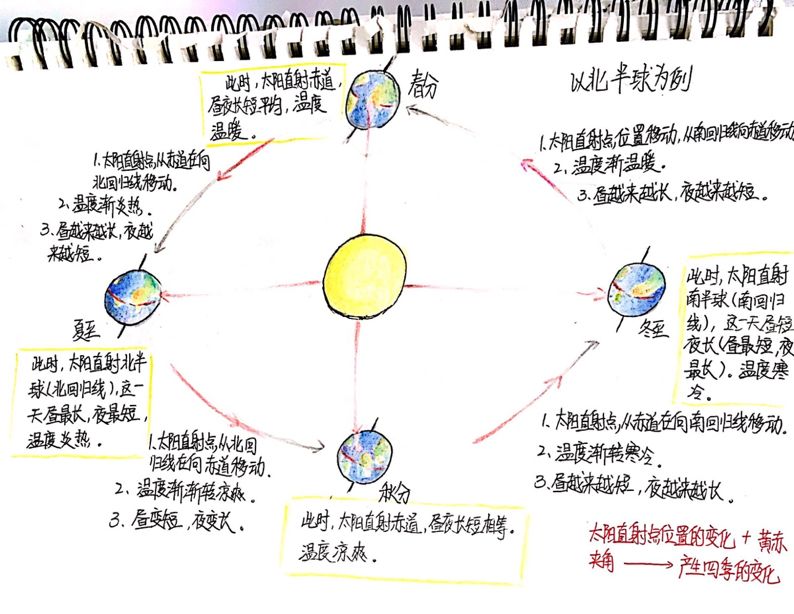 此时，太阳直射赤道，
昼夜长短平均，温度
温暖。
春分
以北半球为例
1.太阳直射点位置移动，从南回归线向赤道移动
2.温度渐温暖。
3.昼越来越长，夜越来越短。
1.太阳直射点，从赤道在向
北回归线移动。
2.温度渐炎热。
3.昼越来越长，夜越
来越短。
夏至
此时，太阳直射北半
球（北回归线），这一
天昼最长，夜最短，
温度炎热。
冬至
此时，太阳直射
南半球（南回归
线），这一天昼短
夜长（昼最短，夜
最长）。温度寒
冷。
1.太阳直射点，从北回
归线在向赤道移动.
2、温度渐渐转凉爽。
3、昼变短，夜变长。
秋分
此时，太阳直射赤道，昼夜长短相等。
温度凉爽。
1、太阳直射点，从赤道在向南回归线移动.
2.温度渐转寒冷。
3.昼越来越短，夜越来越长。
太阳直射点位置的变化 + 黄赤
夹角 → 产生四季的变化